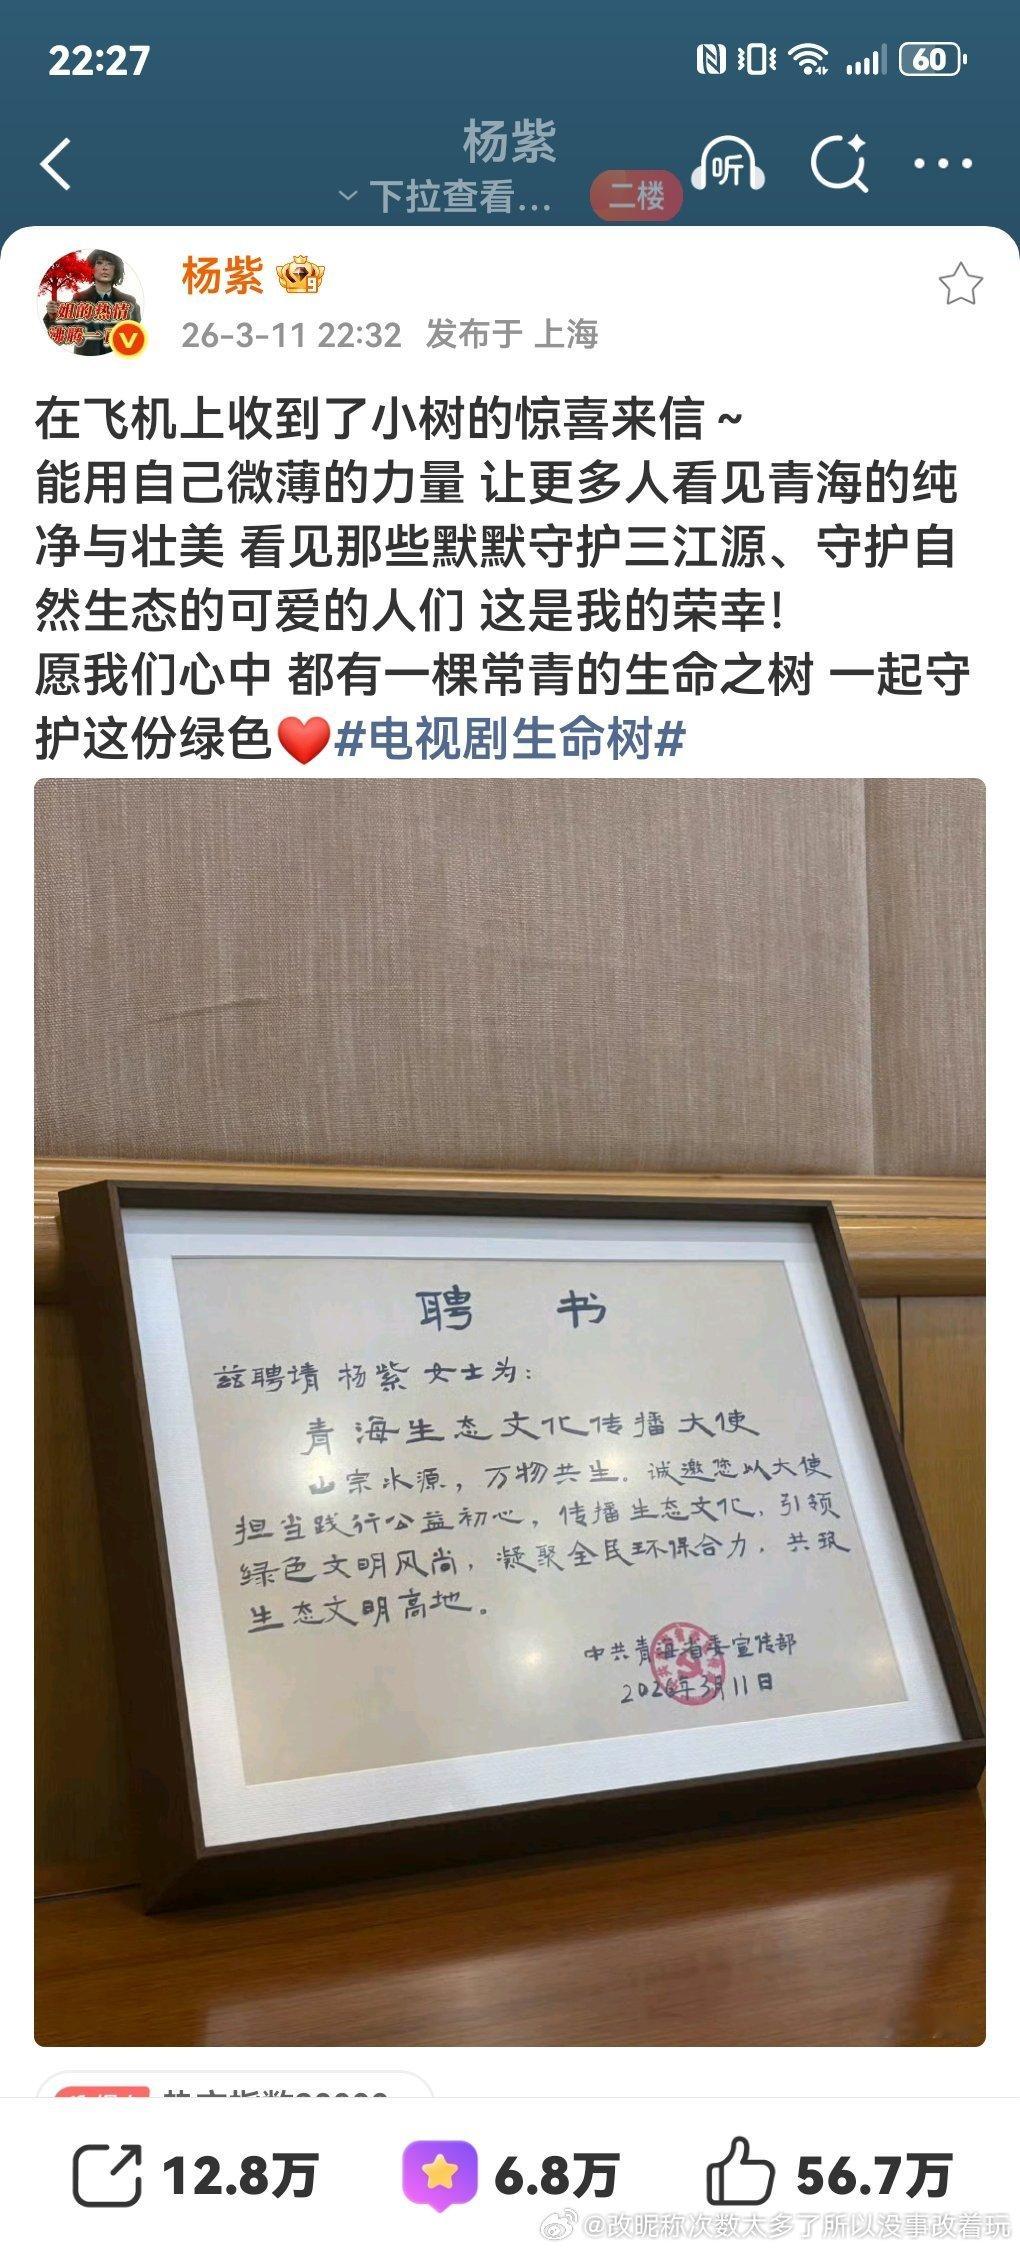 22:27
60
杨紫
下拉查看...
二楼
听
杨紫
9
26-3-11 22:32 发布于 上海
姐的热情
沸腾一
V
在飞机上收到了小树的惊喜来信~
能用自己微薄的力量 让更多人看见青海的纯
净与壮美 看见那些默默守护三江源、守护自
然生态的可爱的人们 这是我的荣幸!
愿我们心中 都有一棵常青的生命之树 一起守
护这份绿色❤️#电视剧生命树#
聘 书
兹聘请 杨紫 女士为:
青海生态文化传播大使
山宗水源，万物共生。诚邀您以大使
担当践行公益初心，传播生态文化，引领
绿色文明风尚，凝聚全民环保合力，共筑
生态文明高地。
中共青海省委宣传部
2026年3月11日
12.8万
6.8万
56.7万
@改昵称次数太多了所以没事改着玩